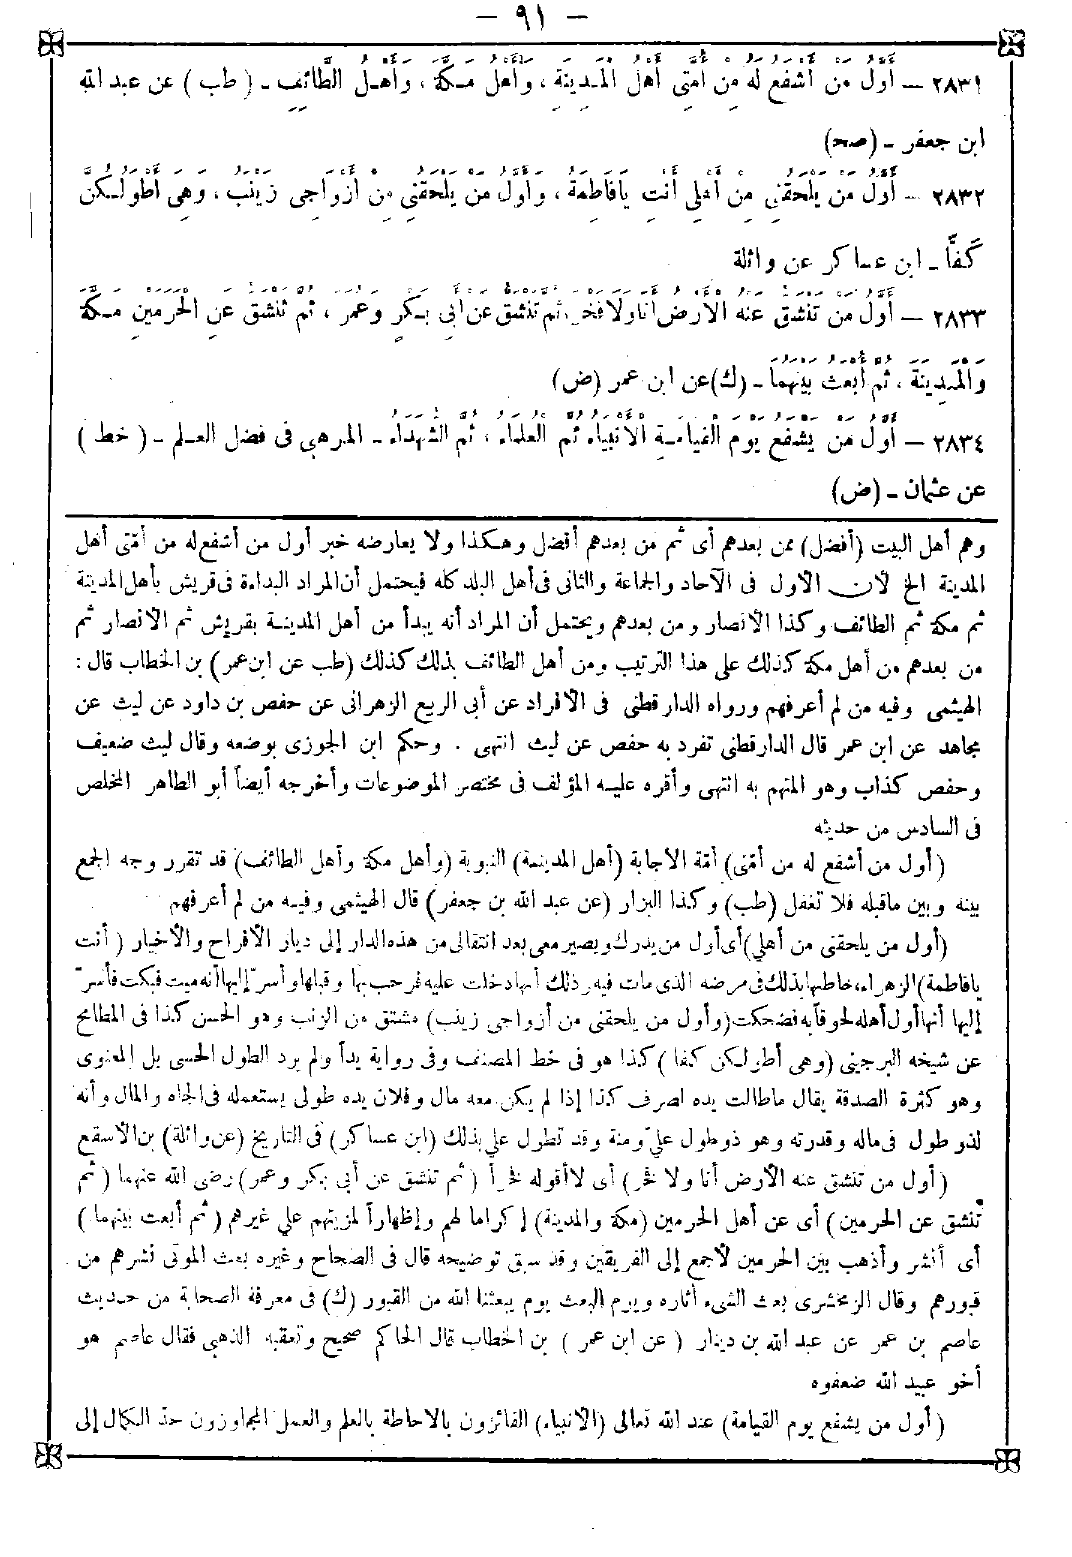 — ٩١ —
٢٨٣١ — أَوَّلُ مَنْ أَشْفَعُ لَهُ مِنْ أُمَّتِي أَهْلُ الْمَدِينَةِ ، وَأَهْلُ مَكَّةَ ، وَأَهْلُ الطَّائِفِ ـ ( طب ) عن عبد الله
ابن جعفر ـ (صح)
٢٨٣٢ — أَوَّلُ مَنْ يَلْحَقُنِي مِنْ أَهْلِي أَنْتِ يَافَاطِمَةُ ، وَأَوَّلُ مَنْ يَلْحَقُنِي مِنْ أَزْوَاجِي زَيْنَبُ ، وَهِيَ أَطْوَلُكُنَّ
كَفًّا ـ ابن عساكر عن واثلة
٢٨٣٣ — أَوَّلُ مَنْ تَنْشَقُّ عَنْهُ الْأَرْضُ أَنَا وَلَا فَخْرَ، ثُمَّ تَنْشَقُّ عَنْ أَبِي بَكْرٍ وَعُمَرَ ، ثُمَّ تَنْشَقُّ عَنِ الْحَرَمَيْنِ مَكَّةَ
وَالْمَدِينَةَ ، ثُمَّ أُبْعَثُ بَيْنَهُمَا ـ (ك) عن ابن عمر (ض)
٢٨٣٤ — أَوَّلُ مَنْ يَشْفَعُ يَوْمَ الْقِيَامَةِ الْأَنْبِيَاءُ ثُمَّ الْعُلَمَاءُ ، ثُمَّ الشُّهَدَاءُ ـ المرهبى فى فضل العلم ـ ( خط )
عن عثمان ـ (ض)
وهم أهل البيت (أفضل) ممن بعدهم أى ثم من بعدهم أفضل وهكذا ولا يعارضه خبر أول من أشفع له من أمتى أهل
المدينة الخ لأن الاول فى الآحاد والجماعة والثانى فى أهل البلد كله فيحتمل أن المراد البداءة فى قريش بأهل المدينة
ثم مكة ثم الطائف وكذا الأنصار ومن بعدهم ويحتمل أن المراد أنه يبدأ من أهل المدينة بقريش ثم الانصار ثم
من بعدهم من أهل مكة كذلك على هذا الترتيب ومن أهل الطائف بذلك كذلك (طب عن ابن عمر) بن الخطاب قال :
الهيثمى وفيه من لم أعرفهم ورواه الدارقطنى فى الافراد عن أبى الربيع الزهرانى عن حفص بن داود عن ليث عن
مجاهد عن ابن عمر قال الدارقطنى تفرد به حفص عن ليث انتهى . وحكم ابن الجوزى بوضعه وقال ليث ضعيف
وحفص كذاب وهو المتهم به انتهى وأقره عليه المؤلف فى مختصر الموضوعات وأخرجه أيضاً أبو الطاهر المخلص
فى السادس من حديثه
(أول من أشفع له من أمتى) أمة الاجابة (أهل المدينة) النبوية (وأهل مكة وأهل الطائف) قد تقرر وجه الجمع
بينه وبين ماقبله فلا تغفل (طب) وكذا البزار (عن عبد الله بن جعفر) قال الهيثمى وفيه من لم أعرفهم
(أول من يلحقنى من أهلي) أى أول من يدرك ويصير معى بعد انتقالى من هذه الدار إلى ديار الأفراح والأخيار (أنت
يافاطمة) الزهراء، خاطبها بذلك فى مرضه الذى مات فيه وذلك أنها دخلت عليه فرحب بها وقبلها وأسرّ إليها أنه ميت فبكت فأسرّ
إليها أنها أول أهله لحوقا به فضحكت (وأول من يلحقنى من أزواجى زينب) مشتق من الزنب وهو الحسن كذا فى المطامح
عن شيخه البرجينى (وهى أطولكن كفا) كذا هو فى خط المصنف وفى رواية يداً ولم يرد الطول الحسى بل المعنوى
وهو كثرة الصدقة يقال ماطالت يده لصرف كذا إذا لم يكن معه مال وفلان يده طولى يستعمله فى الجاه والمال وأنه
لذو طول فى ماله وقدرته وهو ذو طول علىّ ومنة وقد تطول علي بذلك (ابن عساكر) فى التاريخ (عن واثلة) بن الأسقع
(أول من تنشق عنه الأرض أنا ولا فخر) أى لا أقوله فخراً (ثم تنشق عن أبى بكر وعمر) رضى الله عنهما (ثم
تنشق عن الحرمين) أى عن أهل الحرمين (مكة والمدينة) إكراما لهم وإظهاراً لمزيتهم علي غيرهم (ثم أبعث بينهما)
أى أنشر وأذهب بين الحرمين لأجمع إلى الفريقين وقد سبق توضيحه قال فى الصحاح وغيره بعث الموتى نشرهم من
قبورهم وقال الزمخشرى بعث الشىء أثاره ويوم البعث يوم يبعثنا الله من القبور (ك) فى معرفة الصحابة من حديث
عاصم بن عمر عن عبد الله بن دينار ( عن ابن عمر ) بن الخطاب قال الحاكم صحيح وتعقبه الذهبى فقال عاصم هو
أخو عبيد الله ضعفوه
(أول من يشفع يوم القيامة) عند الله تعالى (الأنبياء) الفائزون بالاحاطة بالعلم والعمل المجاوزون حدّ الكمال إلى